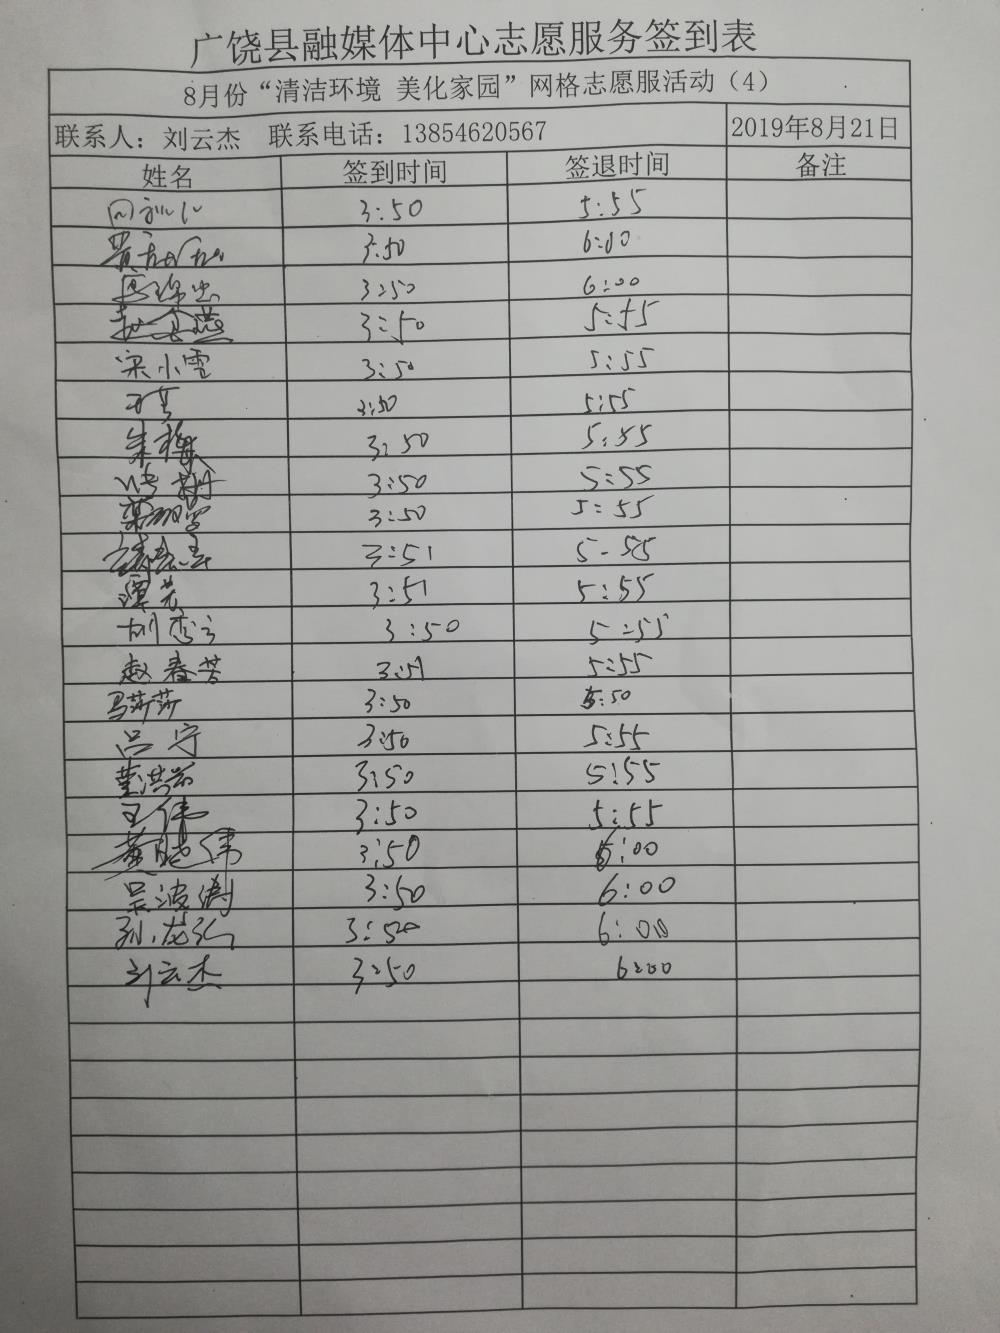 广饶县融媒体中心志愿服务签到表
8月份“清洁环境 美化家园”网格志愿服活动（4）
联系人：刘云杰 联系电话：13854620567 2019年8月21日
姓名 签到时间 签退时间 备注
3:50 5:55
3:50 6:00
3:50 6:00
3:50 5:55
宋小雪 3:50 5:55
3:50 5:55
朱梅 3:50 5:55
3:50 5:55
3:50 5:55
3:51 5-55
谭芳 3:51 5:55
3:50 5:55
赵春芳 3:51 5:55
马莎莎 3:50 5:50
吕宁 3:50 5:55
董洪芬 3:50 5:55
王伟 3:50 5:55
黄晓伟 3:50 6:00
吴波涛 3:50 6:00
孙龙弘 3:50 6:00
刘云杰 3:50 6:00